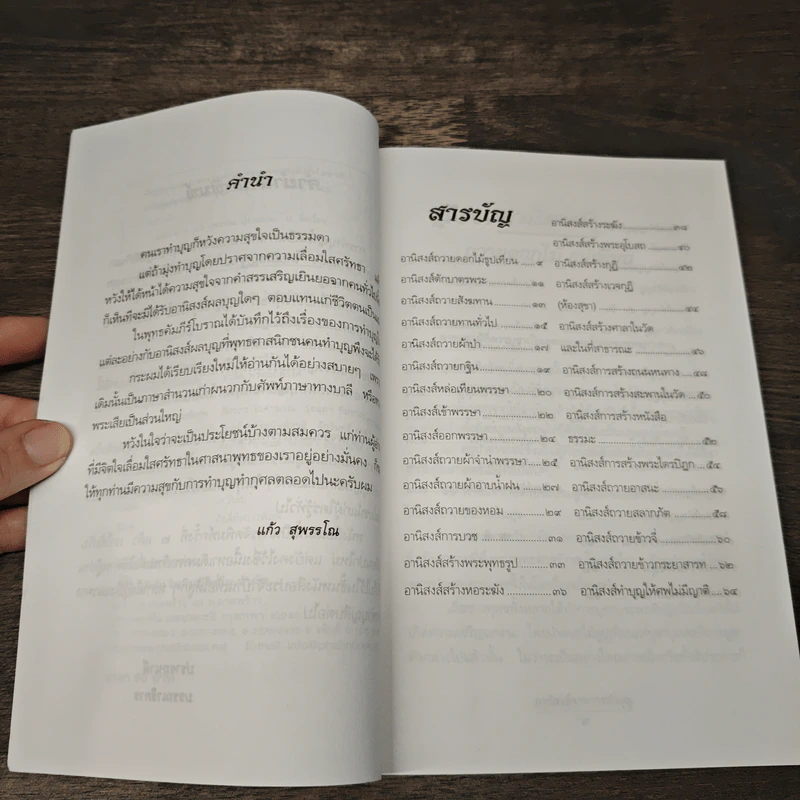 คำนำ
คนเราทำบุญก็หวังความสุขใจเป็นธรรมดา
แต่ถ้ามุ่งทำบุญโดยปราศจากความเลื่อมใสศรัทธา
หวังให้ได้หน้าได้ความสุขใจจากคำสรรเสริญเยินยอจากคนทั่วไป
ก็เห็นทีจะมีได้รับอานิสงส์ผลบุญใดๆ ตอบแทนแก่ชีวิตตน
ในพุทธคัมภีร์โบราณได้บันทึกไว้ถึงเรื่องของการทำบุญ
แต่ละอย่างกับอานิสงส์ผลบุญที่พุทธศาสนิกชนคนทำบุญพึงจะได้
กระผมได้เรียบเรียงใหม่ให้อ่านกันได้อย่างสบายๆ เพราะ
เดิมนั้นเป็นภาษาสำนวนเก่าผนวกกับศัพท์ภาษาทางบาลี
พระเสียเป็นส่วนใหญ่
หวังในใจว่าจะเป็นประโยชน์บ้างตามสมควร แก่ท่านผู้
ที่มีจิตใจเลื่อมใสศรัทธาในศาสนาพุทธของเราอยู่อย่างมั่นคง
ให้ทุกท่านมีความสุขกับการทำบุญทำกุศลตลอดไปนะครับผม
แก้ว สุพรรโณ
สารบัญ
อานิสงส์ถวายดอกไม้ธูปเทียน ..... ๙
อานิสงส์ตักบาตรพระ ..... ๑๑
อานิสงส์ถวายสังฆทาน ..... ๑๓
อานิสงส์ถวายทานทั่วไป ..... ๑๕
อานิสงส์ถวายผ้าป่า ..... ๑๗
อานิสงส์ถวายกฐิน ..... ๑๙
อานิสงส์หล่อเทียนพรรษา ..... ๒๐
อานิสงส์เข้าพรรษา ..... ๒๒
อานิสงส์ออกพรรษา ..... ๒๔
อานิสงส์ถวายผ้าจำนำพรรษา ..... ๒๕
อานิสงส์ถวายผ้าอาบน้ำฝน ..... ๒๗
อานิสงส์ถวายของหอม ..... ๒๙
อานิสงส์การบวช ..... ๓๑
อานิสงส์สร้างพระพุทธรูป ..... ๓๓
อานิสงส์สร้างหอระฆัง ..... ๓๖
อานิสงส์สร้างระฆัง ..... ๓๘
อานิสงส์สร้างพระอุโบสถ ..... ๔๐
อานิสงส์สร้างกุฏิ ..... ๔๒
อานิสงส์สร้างเวจกุฎี
(ห้องสุขา) ..... ๔๔
อานิสงส์สร้างศาลาในวัด
และในที่สาธารณะ ..... ๔๖
อานิสงส์การสร้างถนนหนทาง ..... ๔๘
อานิสงส์การสร้างสะพานในวัด ..... ๕๐
อานิสงส์การสร้างหนังสือ
ธรรมะ ..... ๕๒
อานิสงส์การสร้างพระไตรปิฎก ..... ๕๔
อานิสงส์ถวายอาสนะ ..... ๕๖
อานิสงส์ถวายสลากภัต ..... ๕๘
อานิสงส์ถวายข้าวจี่ ..... ๖๐
อานิสงส์ถวายข้าวกระยาสารท ..... ๖๒
อานิสงส์ทำบุญให้ศพไม่มีญาติ ..... ๖๔